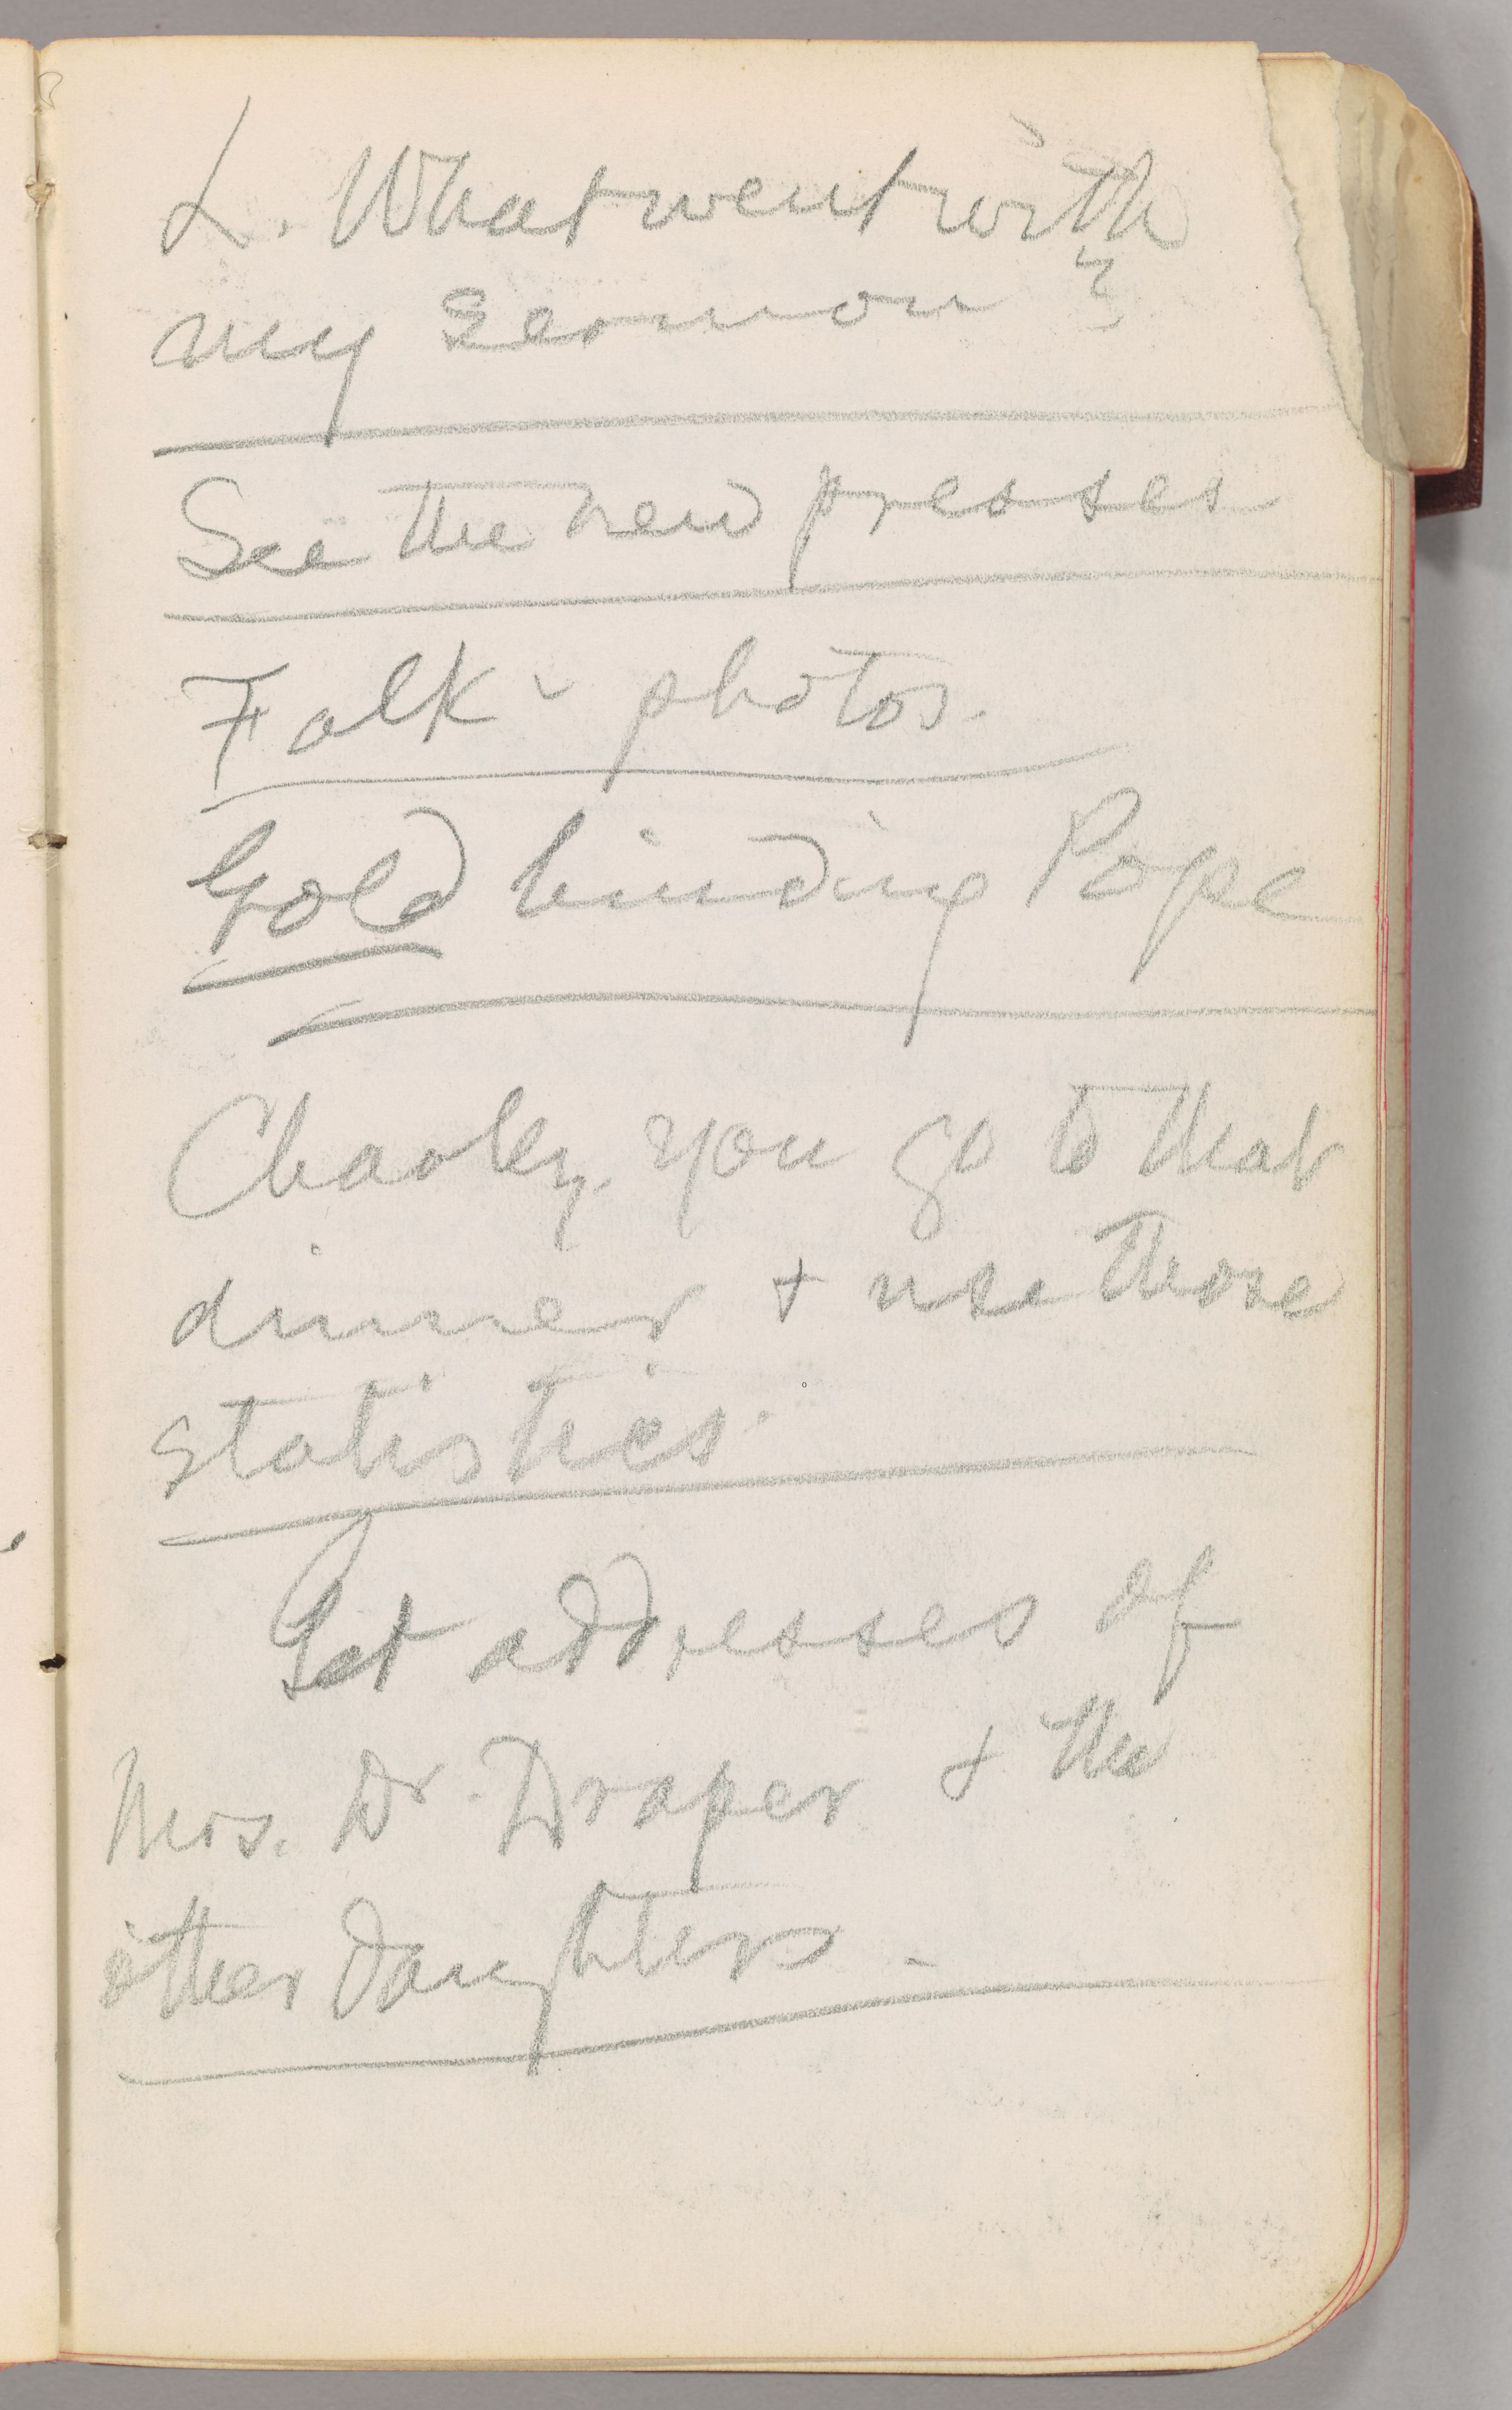 L. What went with
my sermon?
See the new presses
Falk - photos.
Gold binding Pope
Charley, you go to that
dinner + use those
statistics.
Get addresses of
Mrs. Dr. Draper + the
other daughters.